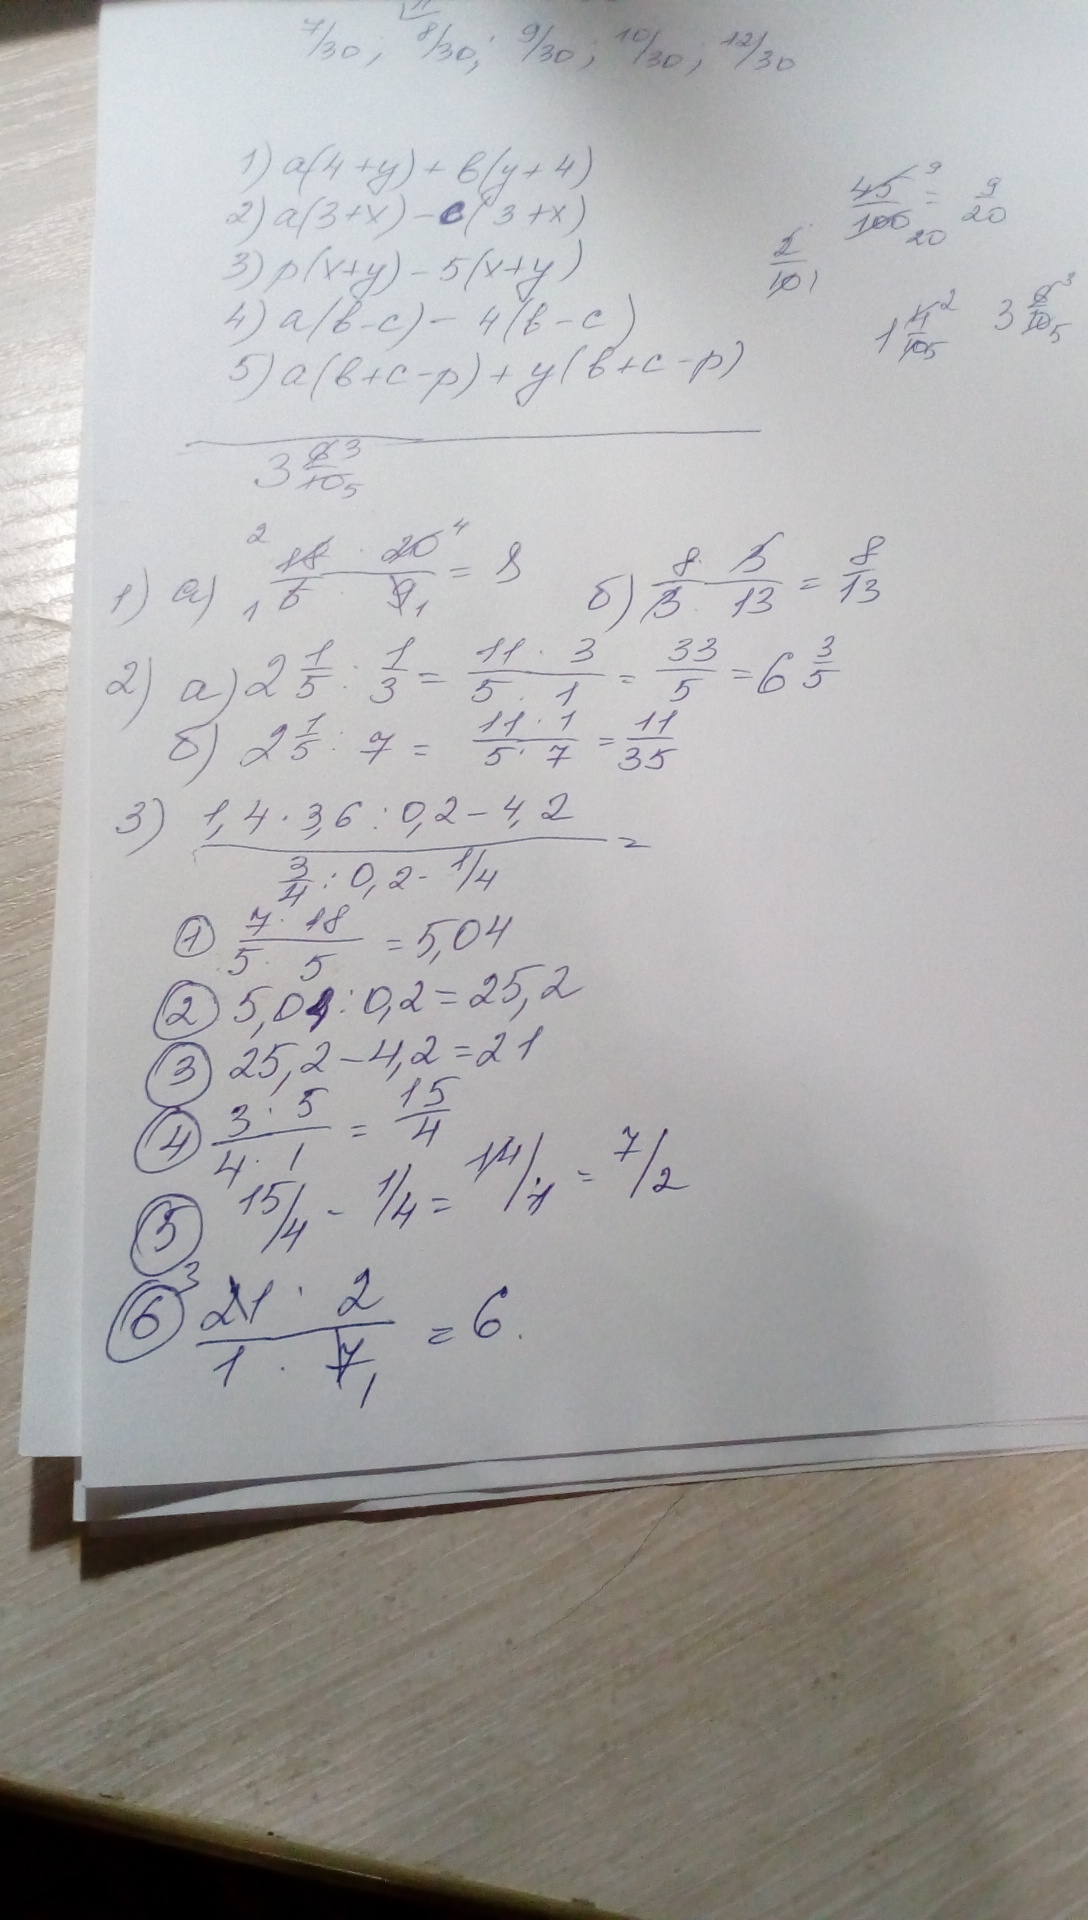 7/30; 8/30; 9/30; 10/30; 12/30
1) a(4+y)+b(y+4)
2) a(3+x)-c(3+x)
3) p(x+y)-5(x+y)
4) a(b-c)-4(b-c)
5) a(b+c-p)+y(b+c-p)
45/100 9 20 = 9/20
1 4/10 2 5
3 6/10 3 5
3 6/10 3 5
1) а) 2 18 · 20 4 / 1 5 · 9 1 = 8 б) 8 · 5 / 5 · 13 = 8/13
2) а) 2 1/5 : 1/3 = 11 · 3 / 5 · 1 = 33/5 = 6 3/5
б) 2 1/5 : 7 = 11 · 1 / 5 · 7 = 11/35
3) 1,4 · 3,6 : 0,2 - 4,2 / 3/4 : 0,2 - 1/4 =
① 7 · 18 / 5 · 5 = 5,04
② 5,04 : 0,2 = 25,2
③ 25,2 - 4,2 = 21
④ 3 · 5 / 4 · 1 = 15/4
⑤ 15/4 - 1/4 = 14/4 = 7/2
⑥ 3 21 · 2 / 1 · 7 1 = 6.